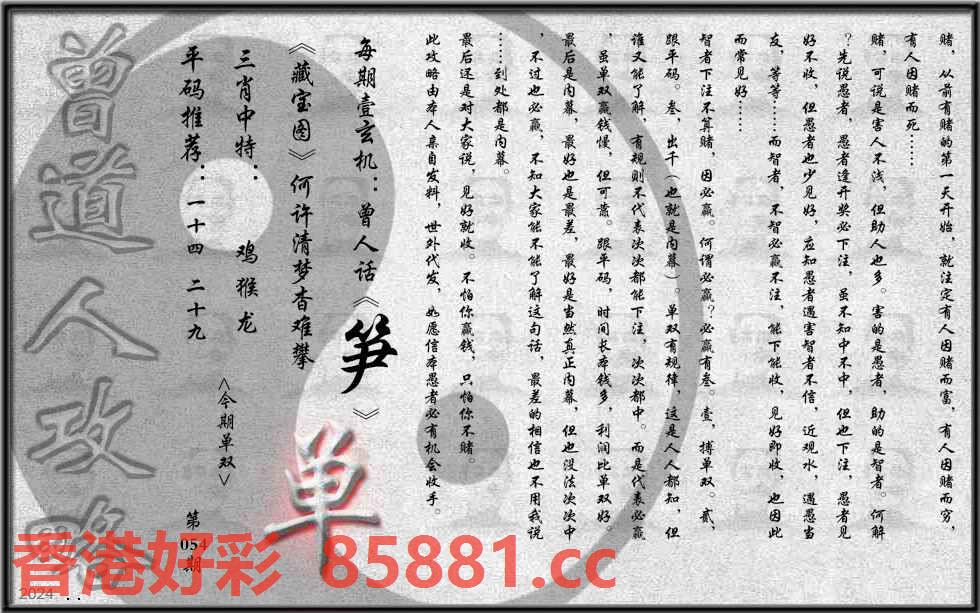 赌，从前有赌的第一天开始，就注定有人因赌而富，有人因赌而穷，
有人因赌而死……
赌，可说是害人不浅，但助人也多。害的是愚者，助的是智者。何解
？先说愚者，愚者逢开奖必下注，虽不知中不中，但也下注，愚者见
好不收，但愚者也少见好，应知愚者遇害智者不信，近观水，遇愚当
友，等等……而智者，不智必赢不注，能下能收，见好即收，也因此
而常见好……
智者下注不算赌，因必赢。何谓必赢？必赢有叁。壹，搏单双。贰，
跟平码。叁，出千（也就是内幕）。单双有规律，这是人人都知，但
谁又能了解，有规则不代表次次都能下注，次次都中。而是代表必赢
，虽单双赢钱慢，但可靠。跟平码，时间长本钱多，利润比单双好。
最后是内幕，最好也是最差，最好是当然真正内幕，但也没法次次中
，不过也必赢，不知大家能不能了解这句话，最差的相信也不用我说
……到处都是内幕。
最后还是对大家说，见好就收。不怕你赢钱，只怕你不赌。
此攻略由本人亲自发料，世外代发，如愿信本愚者必有机会收手。
每期壹玄机：曾人话《笋》
《藏宝图》何许清梦杳难攀
三肖中特：鸡猴龙
平码推荐：一十四 二十九
<今期单双>
单
第054期
曾道人攻略
香港好彩 85881.cc
2024